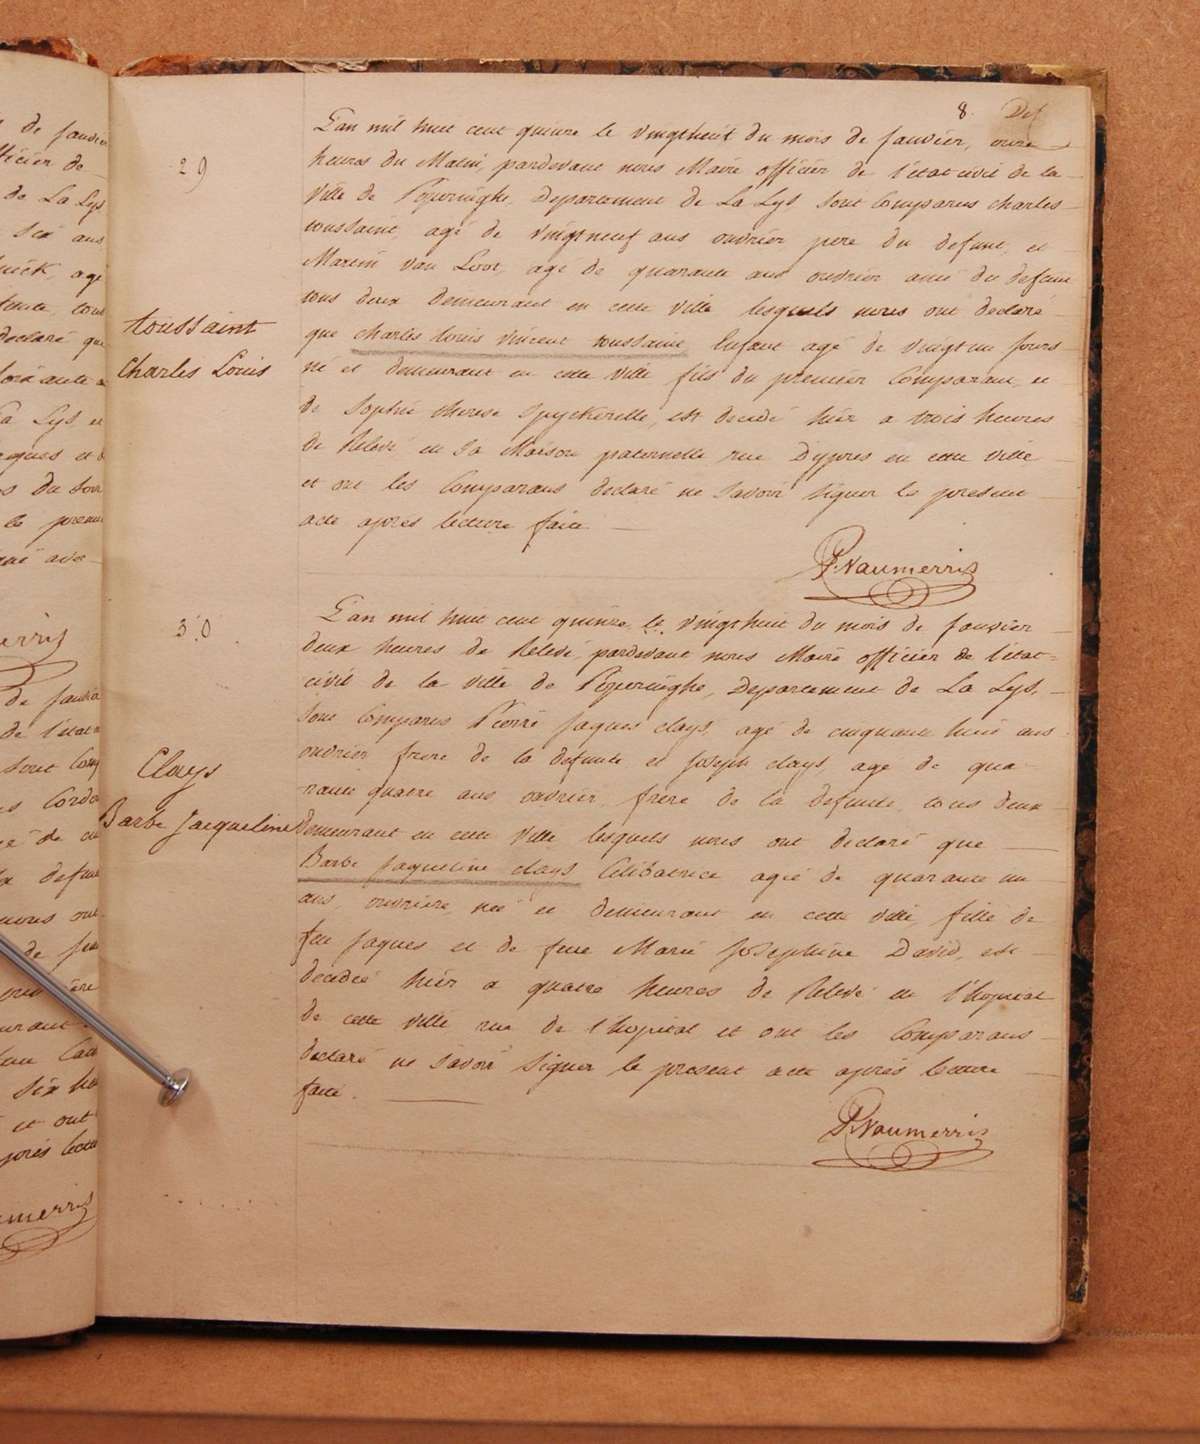 8. Def
29
toussaint
Charles Louis
L'an mil huit cent quinze le vingthuit du mois de Janvier, onze
heures du Matin, pardevant nous Maire officier de l'état civil de la
ville de Poperinghe, Departement de La Lys sont Comparus charles
toussaint, agé de vingtneuf ans ouvrier pere du defunt, et
Martin van Loot, agé de quarante ans ouvrier ami du defunt
tous deux demeurant en cette ville lesquels nous ont declaré
que charles Louis vincent toussaint Enfant agé de vingt un jours
né et demeurant en cette ville fils du premier Comparant et
de Sophie therese Spyckerelle, est decedé hier a trois heures
de Relevé en sa Maison paternelle rue D'ypres en cette ville
et ont les Comparans declaré ne savoir signer le present
acte après lecture faite
P. Vaumerris
30
Clays
Barbe Jacqueline
L'an mil huit cent quinze le vingthuit du mois de Janvier
deux heures de Relevé, pardevant nous Maire officier de l'état
civil de la ville de Poperinghe, Departement de La Lys,
sont Comparus Pierre Jaques clays, agé de cinquante huit ans
ouvrier frere de la defunte et Joseph clays, agé de qua
rante quatre ans ouvrier, frère de la defunte, tous deux
demeurant en cette ville lesquels nous ont declaré que
Barbe Jaqueline clays Célibatrice agée de quarante un
ans, ouvriere, née et demeurant en cette ville, fille de
feu Jaques et de feue Marie Josephine David, est
decedée hier a quatre heures de Relevé en l'hopital
de cette ville rue de l'hopital et ont les Comparans
declaré ne savoir signer le present acte après lecture
faite.
P. Vaumerris